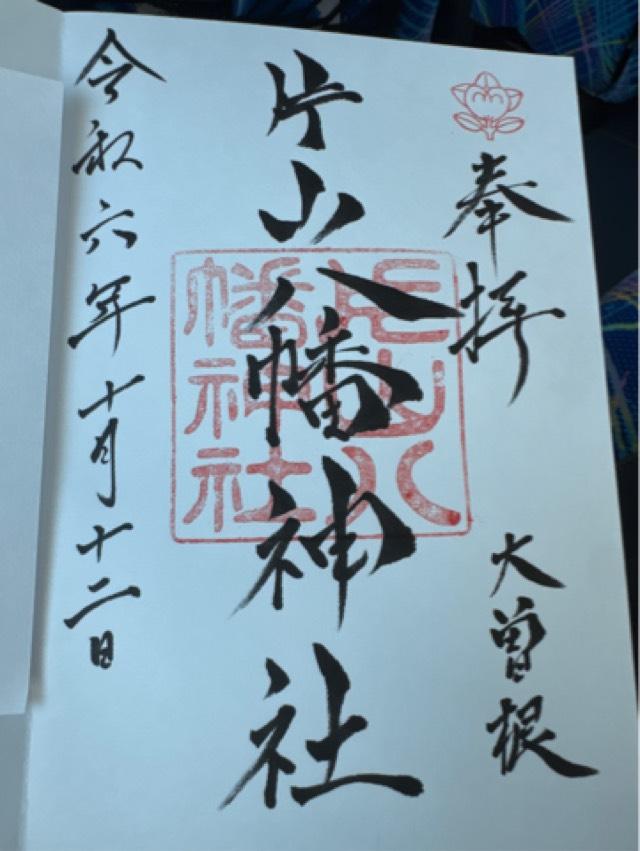 奉拝
大曽根
片山八幡神社
片山八
幡神社
令和六年十月十二日